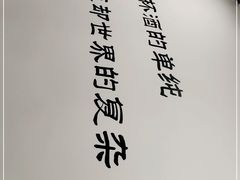 杯酒的单纯
世界的复杂